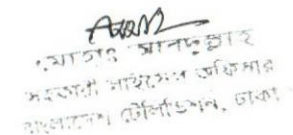 মোহাঃ আসাদুল্লাহ
সহকারী লাইসেন্স অফিসার
বাংলাদেশ টেলিভিশন, ঢাকা